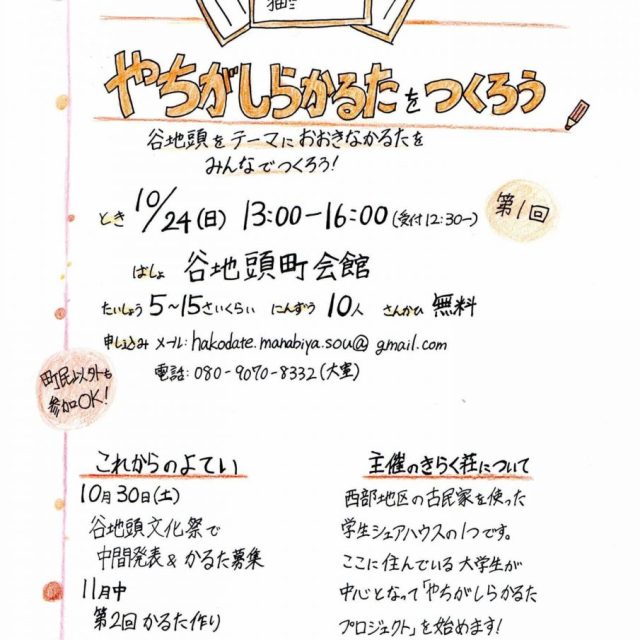 猫
やちがしらかるたをつくろう
谷地頭をテーマにおおきなかるたを
みんなでつくろう!
とき 10/24(日) 13:00-16:00(受付12:30~)
第1回
ばしょ 谷地頭町会館
たいしょう 5~15さいくらい にんずう 10人 さんかひ 無料
申し込み メール: hakodate.manabiya.sou@gmail.com
電話: 080-9070-8332(大室)
町民以外も
参加OK!
これからのよてい
10月30日(土)
谷地頭文化祭で
中間発表&かるた募集
11月中
第2回 かるた作り
主催のきらく荘について
西部地区の古民家を使った
学生シェアハウスの1つです。
ここに住んでいる大学生が
中心となって「やちがしらかるた
プロジェクト」を始めます!